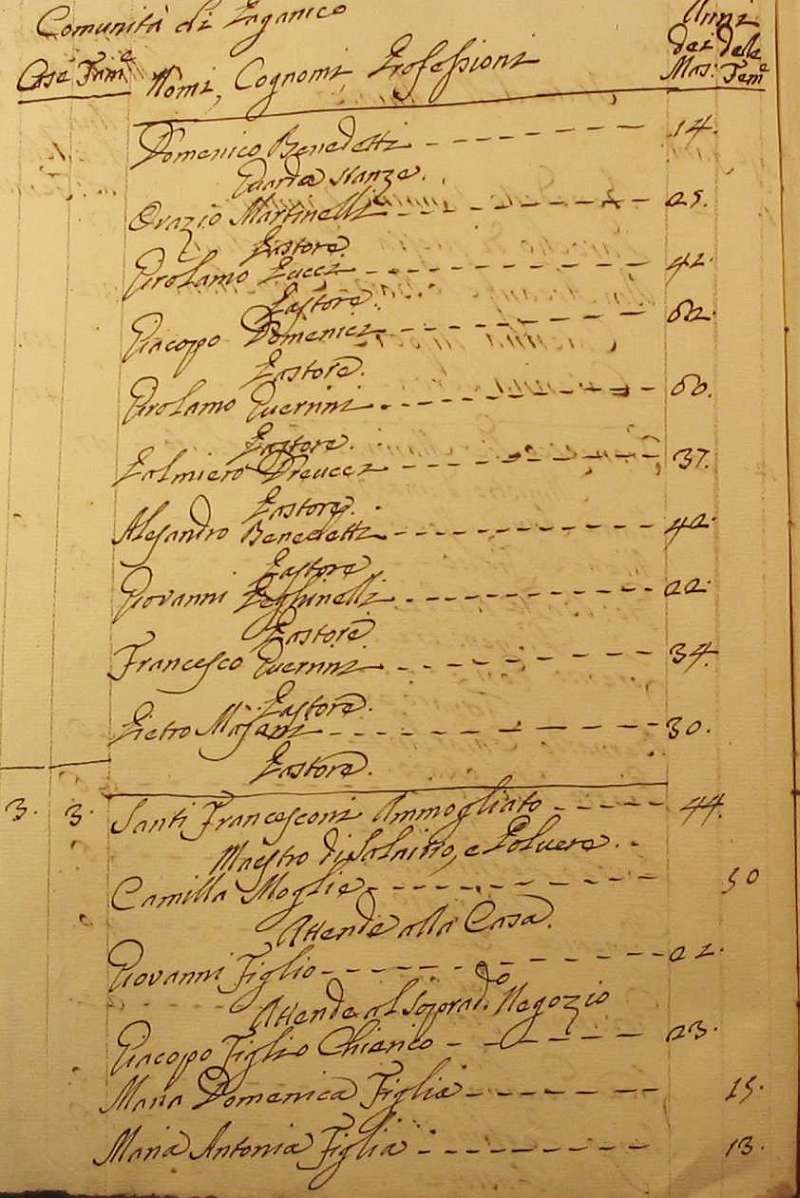 Comunità di Paganico
Anni
Case Fam.e Nomi, Cognomi, Professioni dei Mas: delle Fem.e
Domenico Benedetti 14.
Guarda stanze.
Orazio Martinelli 25.
Pastore.
Girolamo Pucci 42.
Pastore.
Giacopo Domenici 62.
Pastore.
Girolamo Guerrini 60.
Pastore.
Palmiero 37.
Pastore.
Alesandro Benedetti 42.
Pastore
Giovanni 22.
Pastore
Francesco Guerrini 34.
Pastore.
Pietro Masani 30.
Pastore.
3. 3. Santi Francesconi Ammogliato 44.
Maestro di Salnitro, e Polvere.
Camilla Moglie 50
Attende alla Casa.
Giovanni Figlio 22.
Attende al Soprad.o Negozio
Giacopo Figlio Chierico 23.
Maria Domenica Figlia 15.
Maria Antonia Figlia 13.